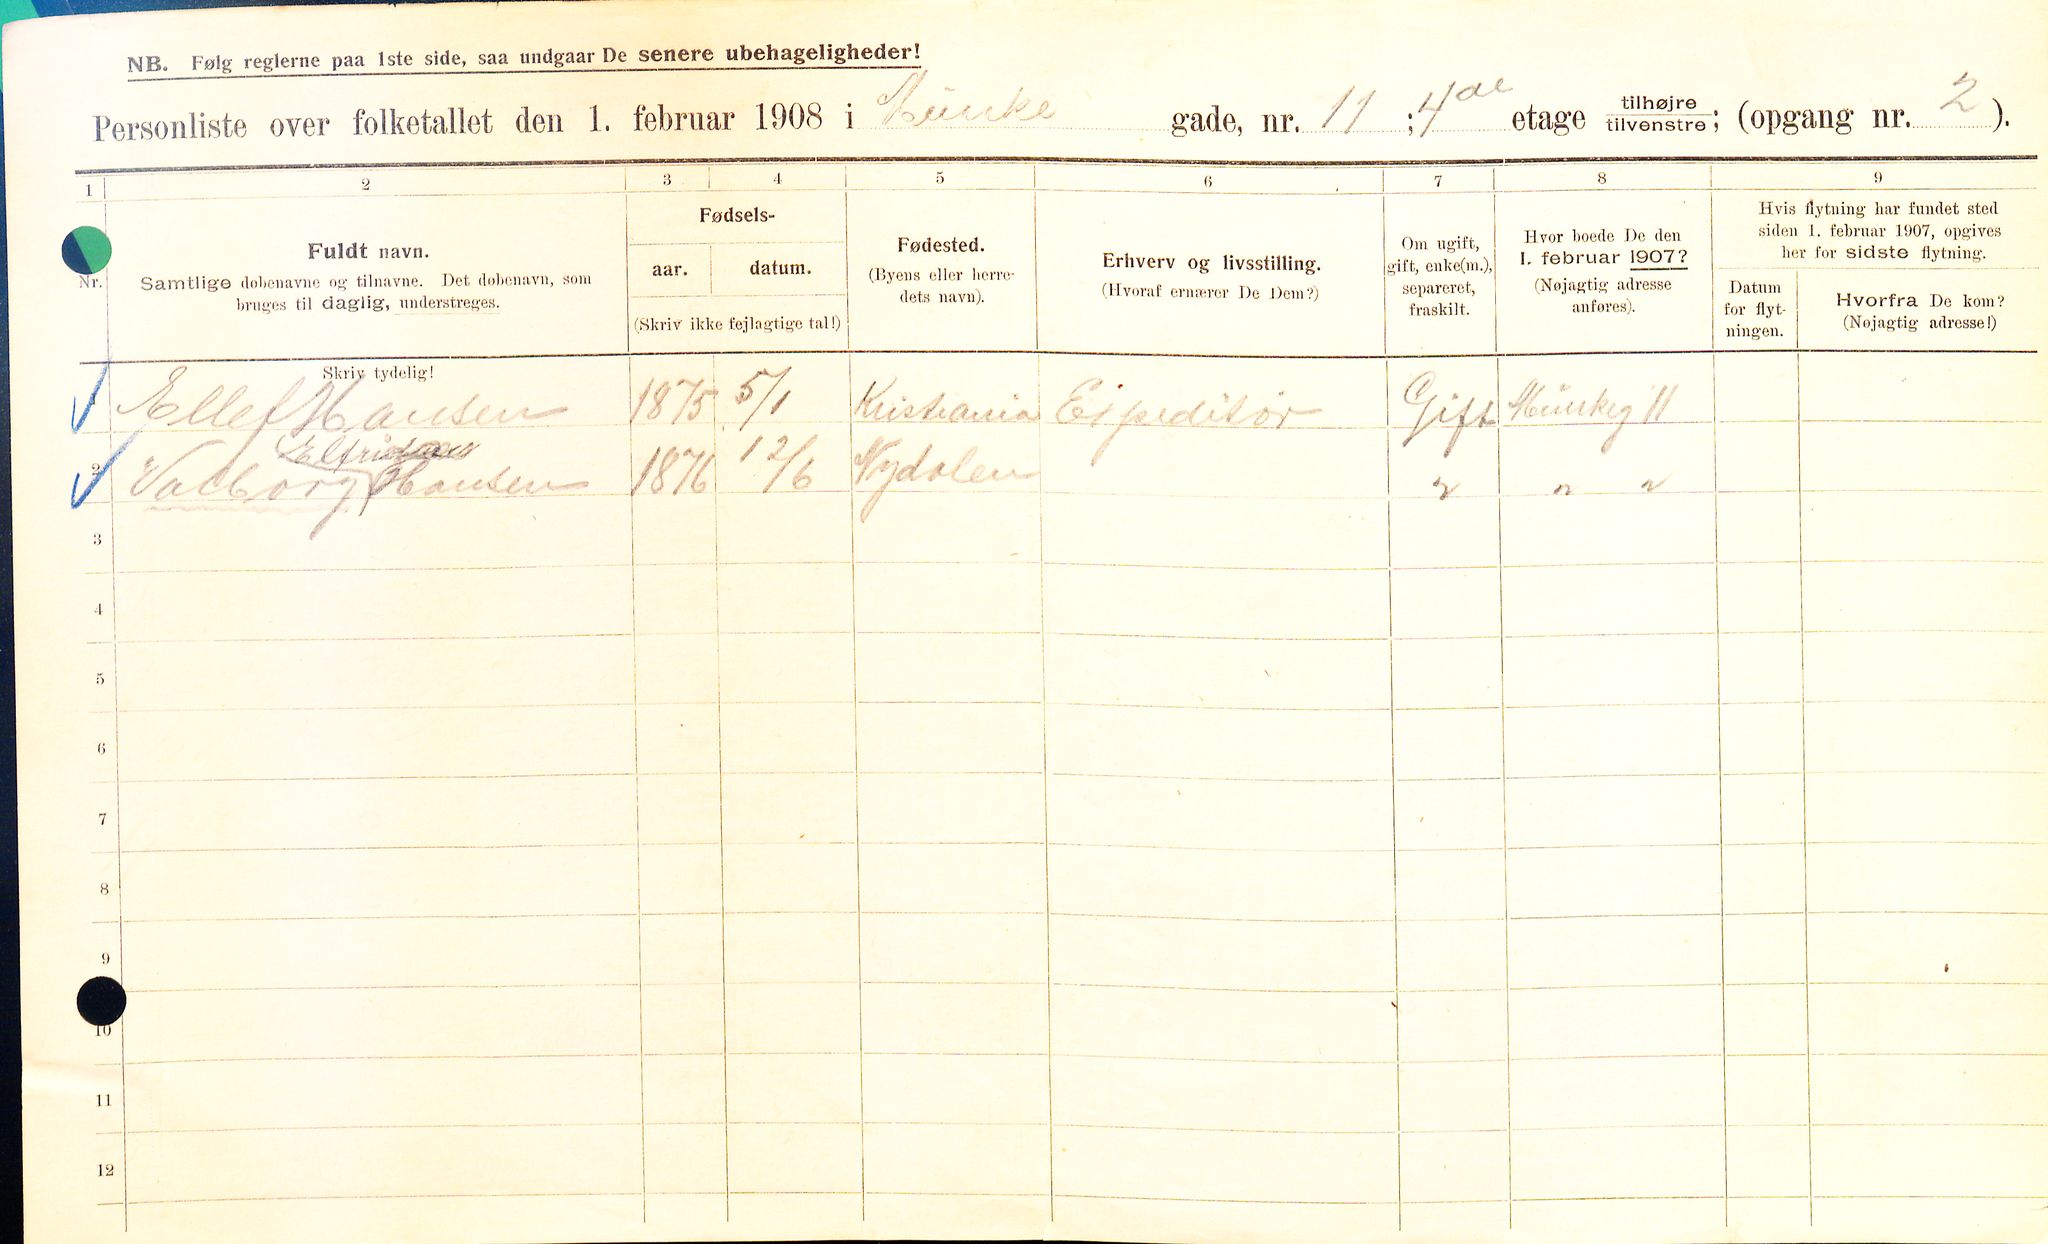 NB. Følg reglerne paa 1ste side, saa undgaar De senere ubehageligheder!
Personliste over folketallet den 1. februar 1908 i Münke gade, nr. 11 ; 4de etage tilhøjre tilvenstre; (opgang nr. 2 ).
1 2 3 4 5 6 7 8 9
Nr.
Fuldt navn.
Samtlige døbenavne og tilnavne. Det døbenavn, som
bruges til daglig, understreges.
Fødsels-
aar. datum.
(Skriv ikke fejlagtige tal!)
Fødested.
(Byens eller herre-
dets navn).
Erhverv og livsstilling.
(Hvoraf ernærer De Dem?)
Om ugift,
gift, enke(m.),
separeret,
fraskilt.
Hvor boede De den
1. februar 1907?
(Nøjagtig adresse
anføres).
Hvis flytning har fundet sted
siden 1. februar 1907, opgives
her for sidste flytning.
Datum
for flyt-
ningen.
Hvorfra De kom?
(Nøjagtig adresse!)
Skriv tydelig!
Ellef Hansen 1875 5/1 Kristiania Expeditør Gift Münkeg 11
Valborg Hansen 1876 12/6 Nydalen " " "
2
3
4
5
6
7
8
9
10
11
12